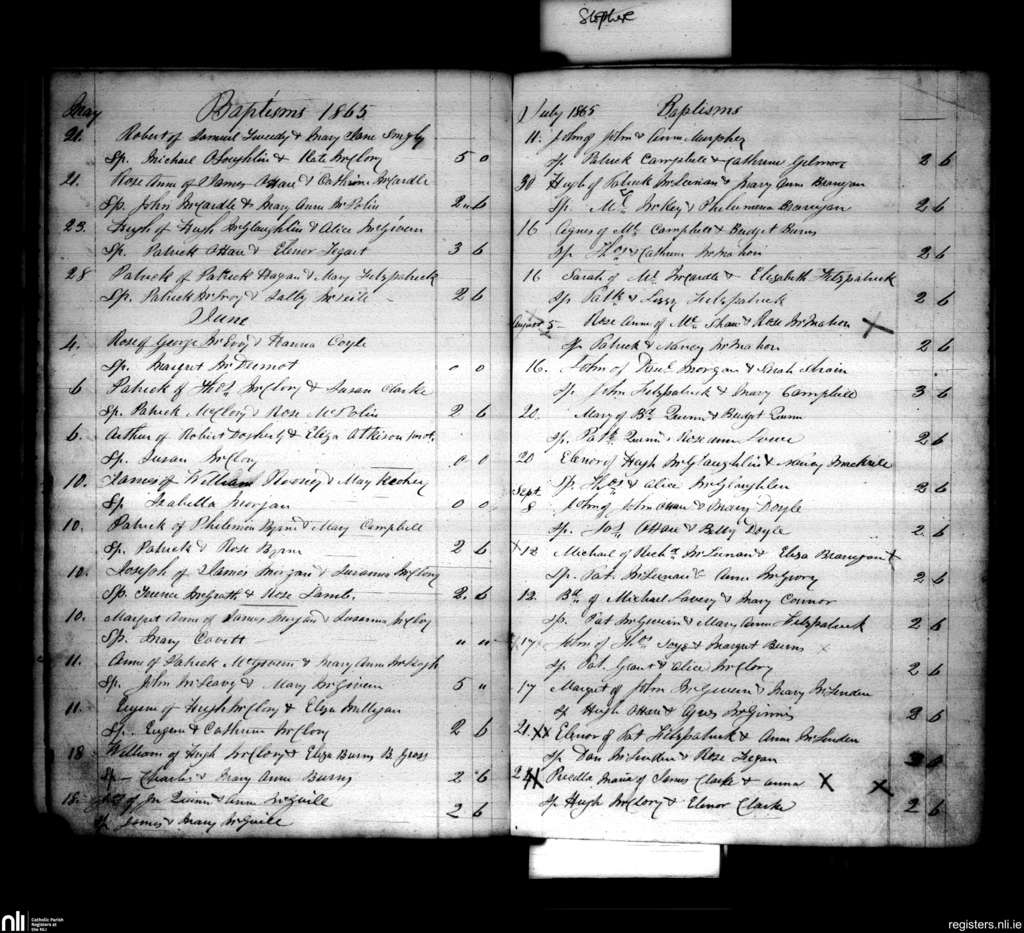 Stephee
May Baptisms 1865
21. Robert of Samuel Tweedy & Mary Jane
Sp. Michael O'Loughlin & Kate McClory 5 0
21. Rose Anne of James O'Hare & Catherine McCardle
Sp. John McCardle & Mary Anne McPolin 2 6
23. Hugh of Hugh McGlaughlin & Alice McGivern
Sp. Patrick O'Hare & Elenor Tegart 3 6
28 Patrick of Patrick Hagan & Mary Fitzpatrick
Sp. Patrick McEvoy & Sally McNeile 2 6
June
4. Rose of George McEvoy & Hanna Coyle
Sp. Margret McDermot 0 0
6 Patrick of Thos. McClory & Susan Clarke
Sp. Patrick McClory & Rose McPolin 2 6
6. Arthur of Robert Dogherty & Eliza Atkison prot.
Sp. Susan McClory 0 0
10. James of William Rooney & May
Sp Isabella Morgan 0 0
10. Patrick of Philemon Byrne & Mary Campbell
Sp. Patrick & Rose Byrne 2 6
10. Joseph of James Morgan & Susanna McClory
Sp. Terence McGrath & Rose Lamb. 2. 6
10. Margret Anne of James Morgan & Susanna McClory
Sp. Mary Cavett " "
11. Anne of Patrick McGivern & Mary Ann McKeogh
Sp. John McLeavy & Mary McGivern 5 "
11. Eugene of Hugh McClory & Eliza Milligan
Sp. Eugene & Catherine McClory 2 6
18 William of Hugh McClory & Eliza Burns B. Gross
Sp - Charles & Mary Anne Burns 2 6
18. of Jn Quinn & Ann McGuile
Sp James & Mary McGuile 2 6
July 1865 Baptisms
11. John of John & Ann Murphey
Sp Patrick Campbell & Catherine Gilmore 2 6
30 Hugh of Patrick McLenan & Mary Ann Branigan
Sp. Ml. McKey & Philumena Branigan 2 6
16 Agnes of Ml. Campbell & Bridget Burns
Sp Thos & Catherine McMahon 2 6
16 Sarah of Ml. McCardle & Elizabeth Fitzpatrick
Sp Patk & Lizzy Fitzpatrick 2 6
August 5 Rose Anne of Ml. Shaw & Rose McMahon X
Sp Patrick & Nancy McMahon 2 6
16. John of Danl Morgan & Sarah Strain
Sp John Fitzpatrick & Mary Campbell 3 6
20. Mary of Bd. Quinn & Bridget Quinn
Sp. Patk. Quinn & Rose ann Lowre 2 6
20 Elenor of Hugh McGlaughlin & Nancy
Sp. Thos & Alice McGlaughlin 2 6
Sept.
8 John of John O'Hare & Mary Doyle
Sp. Jas. O'Hare & Betty Doyle 2. 6
x 12 Michael of Richd McLenan & Eliza Branigan x
Sp. Pat. McLenan & Anne McGivry 2 6
12. Bd. of Michael Lavery & Mary Connor
Sp. Pat McGivern & Mary Anne Fitzpatrick 2 6
17 John of Thos Joys & Margret Burns x
Sp Pat. Grant & Alice McClory 2 6
17 Margret of John McGivern & Mary McLinden
Sp Hugh O'Hare & Agnes McGinnis 2 6
21. XX Elenor of Pat Fitzpatrick & Anne McLinden
Sp Dan McLinden & Rose Fegan
24 X Pricilla Maria of James Clarke & anna X X
Sp Hugh McClory & Elenor Clarke 2 6
nli
Catholic Parish
Registers at
the NLI
registers.nli.ie